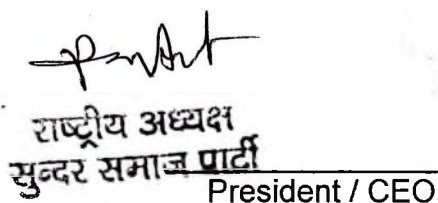 राष्ट्रीय अध्यक्ष
सुन्दर समाज पार्टी
President / CEO